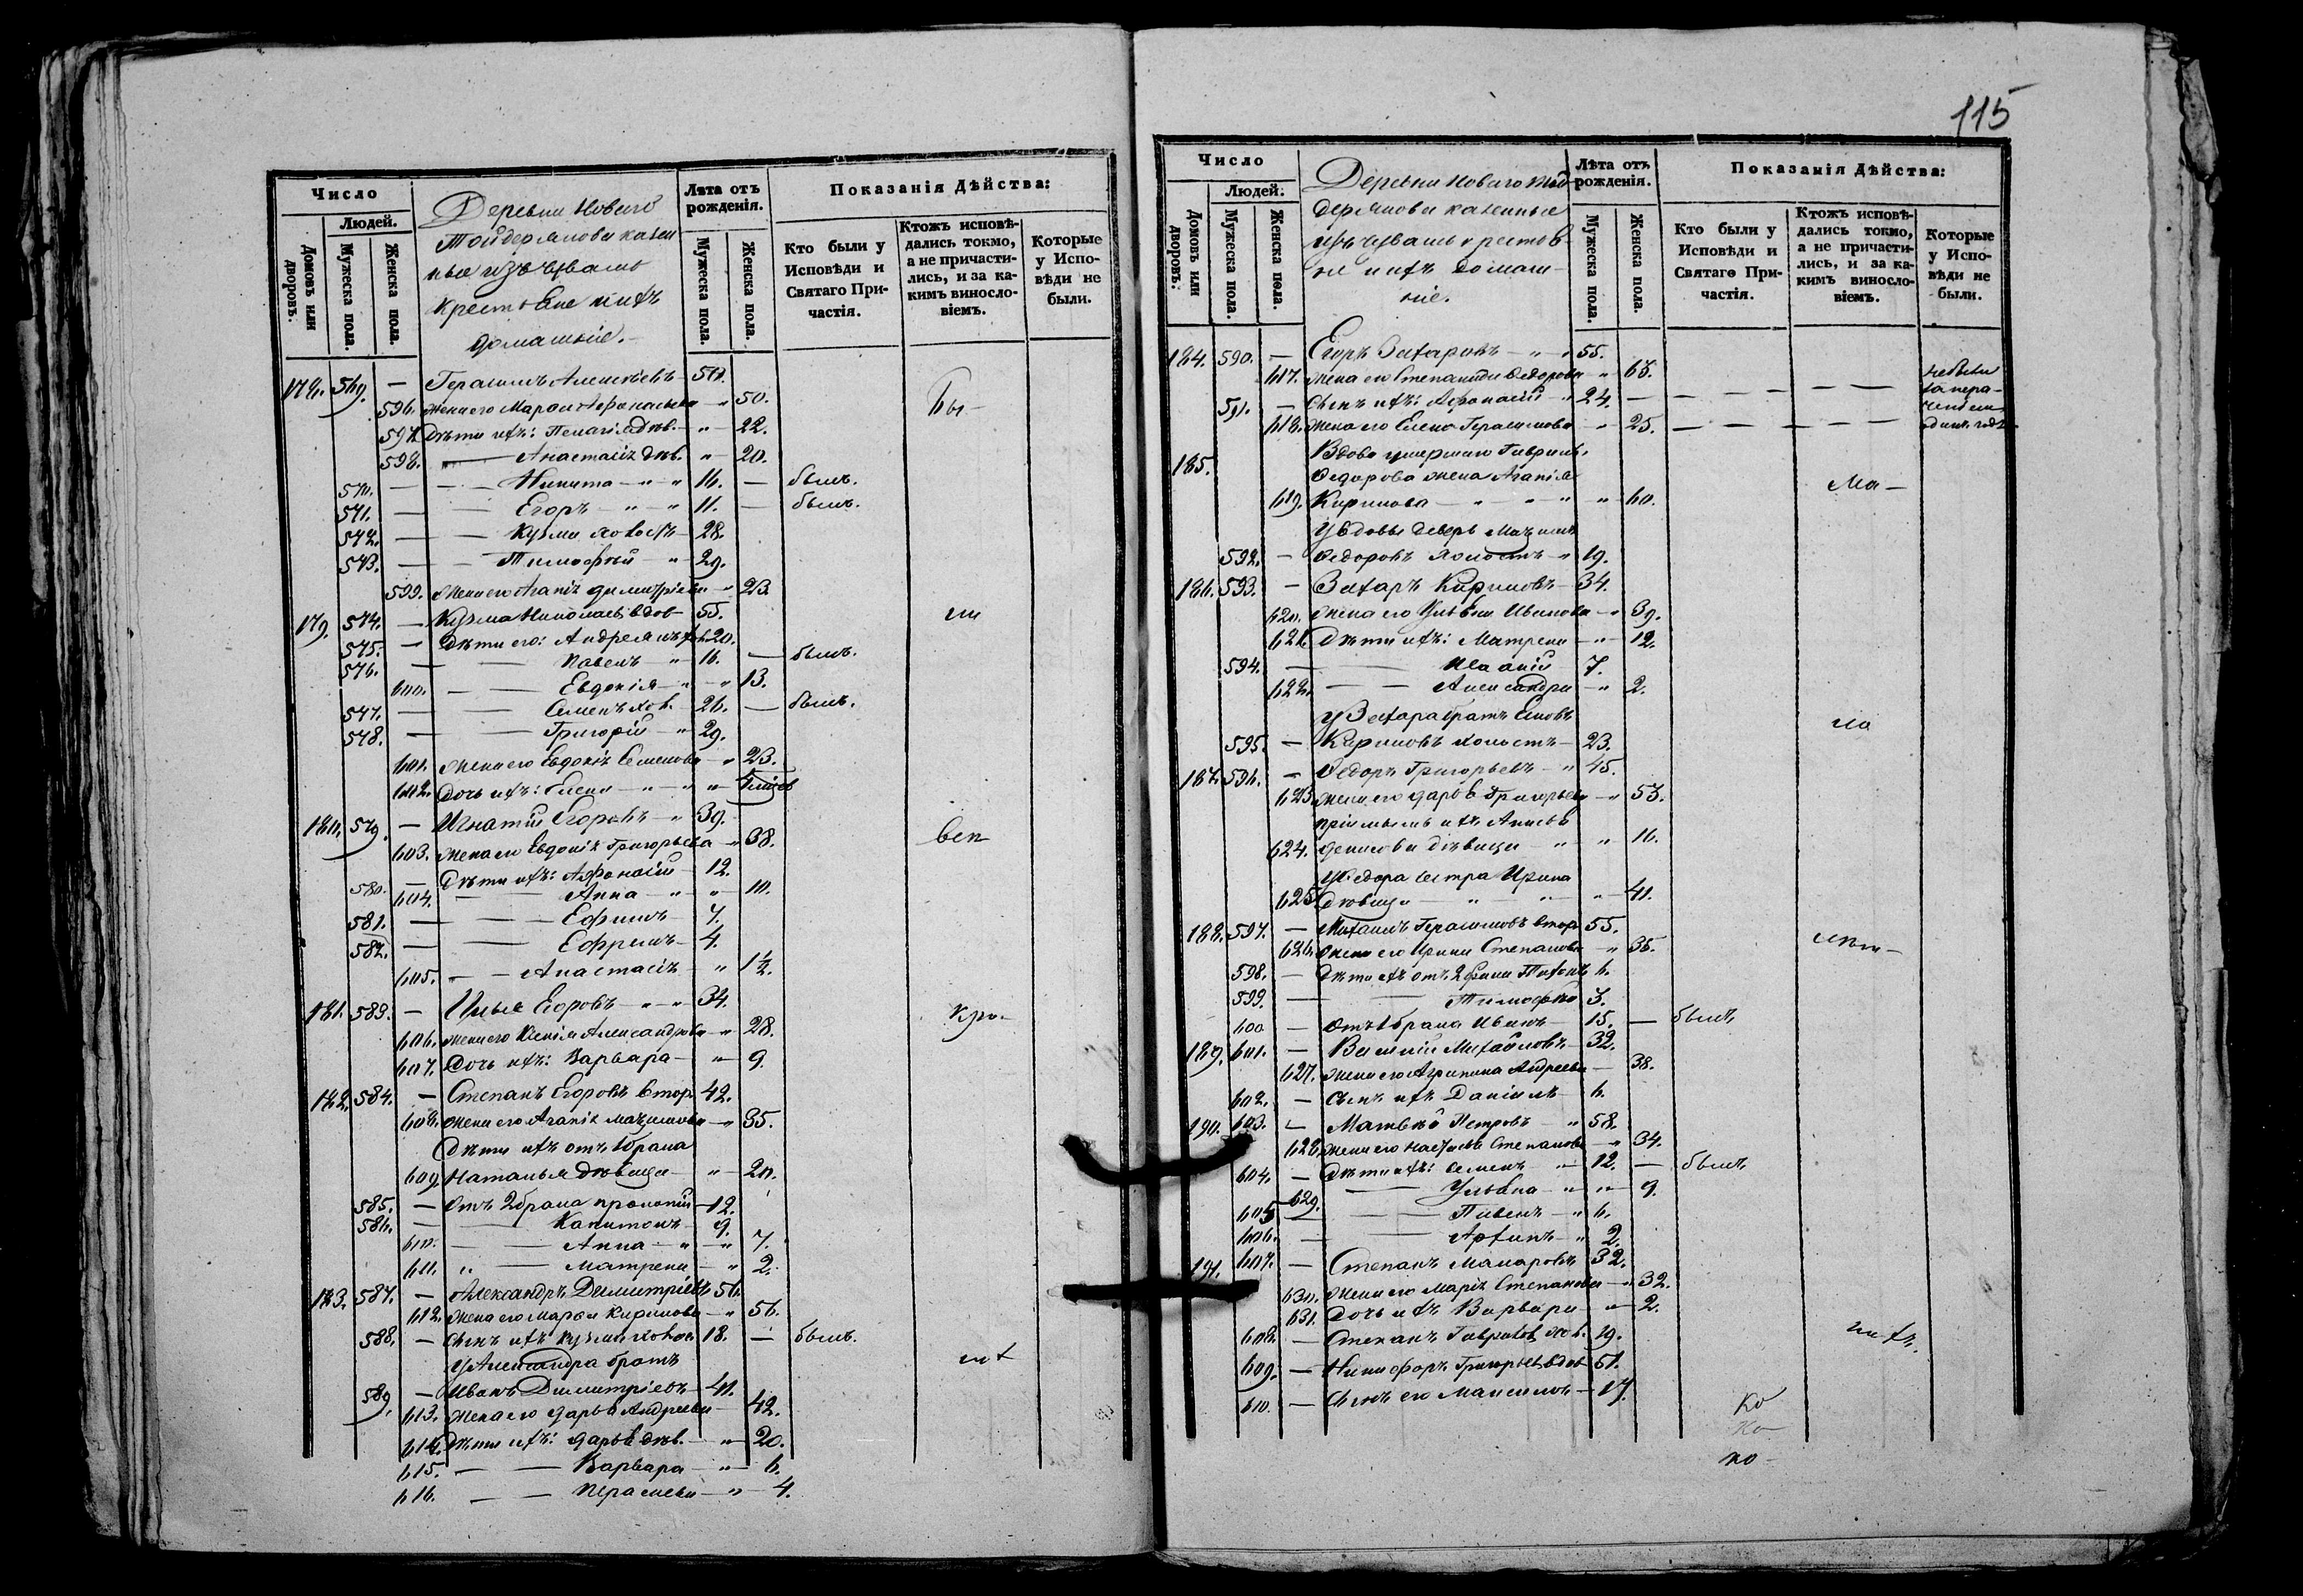 115
Число
Людей.
Домовъ или дворовъ.
Мужеска пола.
Женска пола.
Деревни Новаго
Тойдерякова казен
ные изъ чувашъ
крестьяне и ихъ
домашніе.
Лѣта отъ рожденія.
Мужеска пола.
Женска пола.
Показанія Дѣйства:
Кто были у Исповѣди и Святаго Причастія.
Ктожъ исповѣдались токмо, а не причастились, и за какимъ винословіемъ.
Которые у Исповѣди не были.
178. 569. — Герасимъ Алексѣевъ —
596. Жена его Марѳа Аѳонасьева — " 50. Бы-
597. Дѣти ихъ: Пелагія дѣв. — " — 22.
598. — Анастасія дѣв. " — 20.
570. — Никита — " — " 16. — былъ.
571. — Егоръ — " — " 11. — былъ.
572. — Кузма холостъ — 28.
573. — Тимоѳей — " 29.
599. Жена его Агапія Димитріева — " 23.
179. 574. — Кузма Николаевъ вдов — 55. ли
575. — Дѣти его: Андреянъ хол. 20.
576. — Павелъ — " 16. — былъ.
600. — Евдокія — " — " 13.
577. — Семенъ хол. 26. — былъ.
578. — Григорій — " 29.
601. Жена его Евдокія Семенова — " 23.
602. Дочь ихъ: Елена — " — " "
180. 579. — Игнатій Егоровъ — " 39.
603. Жена его Евдокія Григорьева — " 38. всп
580. — Дѣти ихъ: Аѳонасій — 12.
604. — Анна — " — " 10.
581. — Ефимъ — 7.
582. — Ефремъ — 4.
605. — Анастасія — " 1½.
181. 583. — Илья Егоровъ — " — 34. кро-
606. Жена его Ксенія Александрова — " 28.
607. Дочь ихъ: Варвара — " 9.
182. 584. — Степанъ Егоровъ втор. 42.
608. Жена его Агапія Максимова — " 35.
Дѣти ихъ отъ 1 брака
609. Наталья дѣвица — " — 20.
585. — Отъ 2 брака Прокопій — 12.
586. — Капитонъ — 9.
610. — Анна — " — " 7.
611. " — Матрена — " 2.
183. 587. — Александръ Димитріевъ 56.
612. Жена его Марѳа Кирилова — " 56.
588. — Сынъ ихъ Кузма холос 18. — былъ.
У Александра братъ
589. — Иванъ Димитріевъ —
613. Жена его Дарья Андреева — 42.
614. Дѣти ихъ: Дарья дѣв. — " — 20.
615. — Варвара — " — 6.
616. — — " — 4.
Число
Людей.
Домовъ или дворовъ.
Мужеска пола.
Женска пола.
Деревни Новаго Той-
дерякова казенные
изъ чувашъ крестья-
не и ихъ домаш-
ніе.
Лѣта отъ рожденія.
Мужеска пола.
Женска пола.
Показанія Дѣйства:
Кто были у Исповѣди и Святаго Причастія.
Ктожъ исповѣдались токмо, а не причастились, и за какимъ винословіемъ.
Которые у Исповѣди не были.
184. 590. — Егоръ Захаровъ — " — " 55.
617. Жена его Степанида Ѳедорова — " 65. не были
591. — Сынъ ихъ: Аѳонасій — " 24.
618. Жена его Елена Герасимова — " 25.
185. Вдова умершаго Гаврила
Ѳедорова жена Агапія
619. Кирилова — " — " " 60. ма-
У вдовы деверь Максимъ
592. — Ѳедоровъ холостъ — " 19.
186. 593. — Захаръ Кириловъ — 34.
620. Жена его Ульяна Иванова — " 39.
621. Дѣти ихъ: Матрена — " — 12.
594. — 7.
622. — Александра — " 2.
У Захара братъ
595. — Кириловъ холостъ — 23. ло
187. 596. — Ѳедоръ Григорьевъ — " 45.
623. Жена его Дарья Григорьева — " 53.
624. Денисова дѣвица — " — " 16.
У Ѳедора сестра Ирина
625. Дѣвица — " — " — " 41.
188. 597. — Михаилъ Герасимовъ втор. 55.
626. Жена его Ирина Степанова — " 35.
598. — Дѣти ихъ отъ 2 брака Тихонъ 6.
599. — Тимоѳей 3.
600 — Отъ 1 брака Иванъ — 15. — былъ
189. 601. — Василій Михайловъ — 32.
627. Жена его Агрипина Андреева — 38.
602. — Сынъ ихъ Даніилъ — 6.
190. 603. — Матвѣй Петровъ — " 58.
628. Жена его Настасья Степанова — " 34.
604. — Дѣти ихъ: Семенъ — " 12. — былъ
629. — Ульяна — " — " 9.
605 — Павелъ — " 6.
606. — Архипъ — " 2.
191. 607. — Степанъ Макаровъ 32.
630. Жена его Марія Степанова — " 32.
631. Дочь ихъ Варвара — " 2.
608. — Степанъ Гавриловъ хол. 19.
609. — Никифоръ Григорьевъ вдов 51.
610. — Сынъ его Максимъ — 17.
ко
ко
ко-